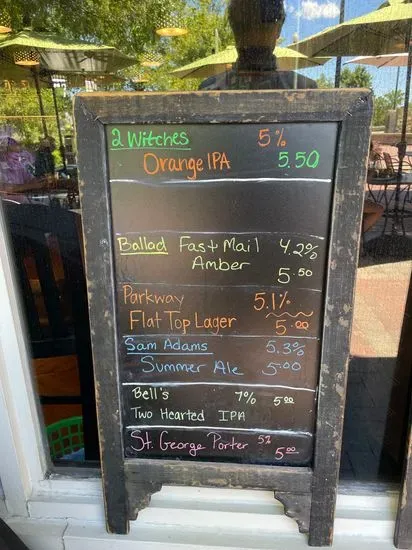 2 Witches 5%
Orange IPA 5.50
Ballad Fast Mail 4.2%
Amber 5.50
Parkway 5.1%
Flat Top Lager 5.00
Sam Adams 5.3%
Summer Ale 5.00
Bell's 7% 5.00
Two Hearted IPA
St. George Porter 5% 5.00